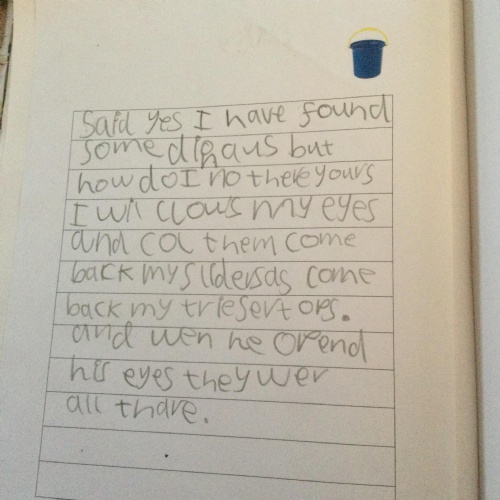 Said yes I have found
some dignaus but
how do I no there yours
I wil clows my eyes
and col them come
back my slidersas come
back my triesert ors.
and wen he opend
his eyes they wer
all thare.